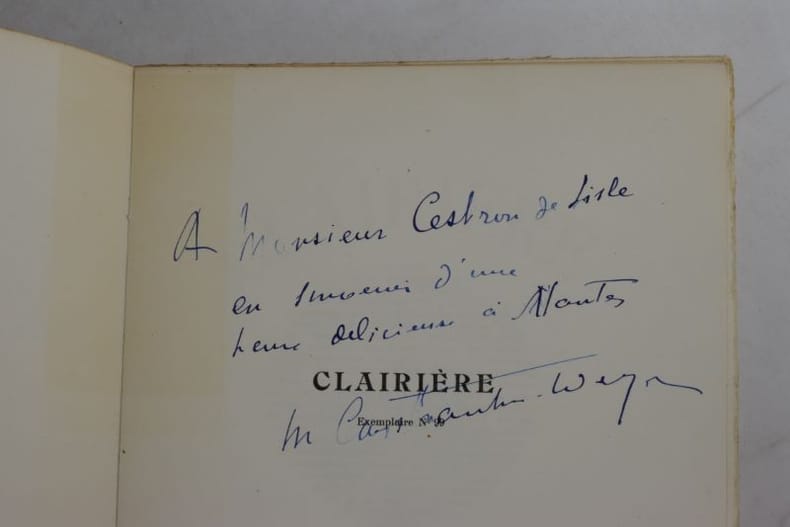 A Monsieur Cesbron de Lisle
en souvenir d'une
heure délicieuse à Nantes
CLAIRIÈRE
Exemplaire N° 99
M Constantin-Weyer